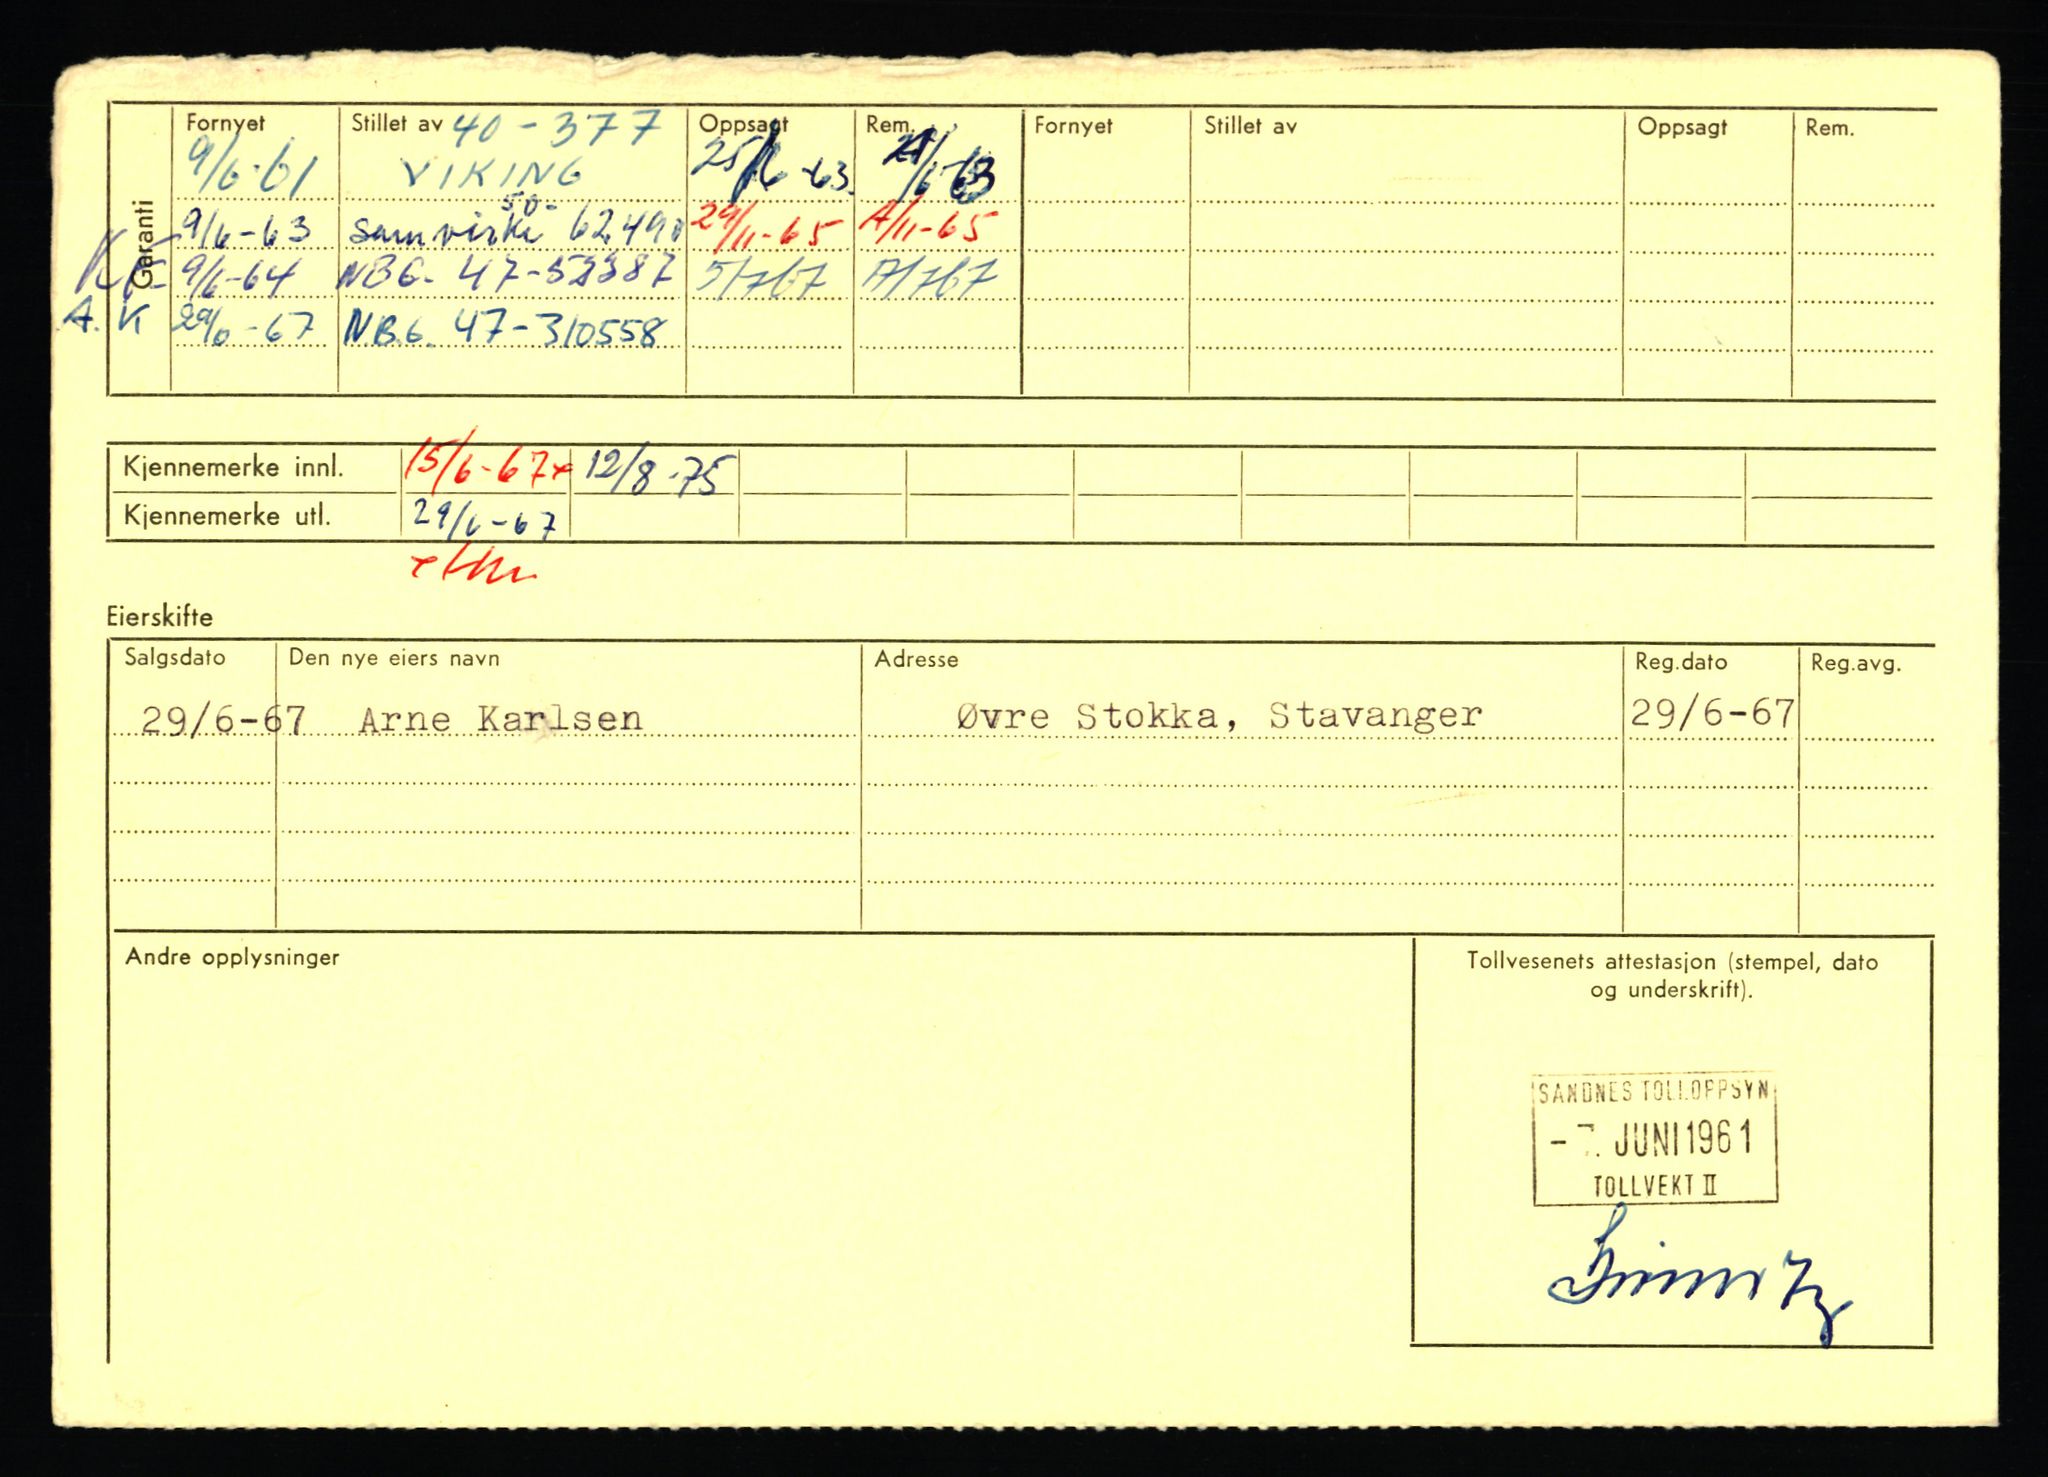 Fornyet Stillet av 40-377 Oppsagt Rem. Fornyet Stillet av Oppsagt Rem.
9/6-61 VIKING 25/6-63 /6-63
Garanti
50-
9/6-63 Samvirke 62490 29/11-65 A/11-65
9/6-64 NBG. 47- 5/767 A/767
A.K 29/6-67 N.B.G. 47-310558
Kjennemerke innl. 15/6-67x 12/8-75
Kjennemerke utl. 29/6-67
Eierskifte
Salgsdato Den nye eiers navn Adresse Reg.dato Reg.avg.
29/6-67 Arne Karlsen Øvre Stokka, Stavanger 29/6-67
Andre opplysninger
Tollvesenets attestasjon (stempel, dato
og underskrift).
SANDNES TOLLOPPSYN
-7. JUNI 1961
TOLLVEKT II